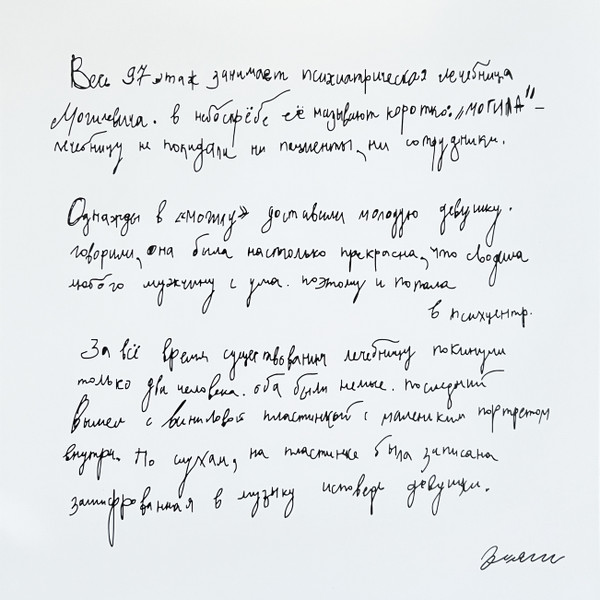 Весь 97 этаж занимает психиатрическая лечебница
Могилевича. в небоскрёбе её называют коротко: „МОГИЛА" –
лечебницу не покидали ни пациенты, ни сотрудники.
Однажды в «могилу» доставили молодую девушку.
говорили, она была настолько прекрасна, что сводила
любого мужчину с ума. поэтому и попала
в психцентр.
За всё время существования лечебницу покинули
только два человека. оба были немые. последний
вышел с виниловой пластинкой с маленьким портретом
внутри. По слухам, на пластинке была записана
зашифрованная в музыку исповедь девушки.